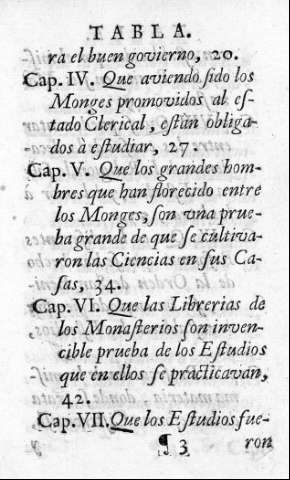 TABLA.
ra el buen govierno, 20.
Cap. IV. Que aviendo sido los
Monges promovidos al es-
tado Clerical, estàn obliga-
dos à estudiar, 27.
Cap. V. Que los grandes hom-
bres que han florecido entre
los Monges, son vna prue-
ba grande de que se cultiva-
ron las Ciencias en sus Ca-
sas, 34.
Cap. VI. Que las Librerias de
los Monasterios son inven-
cible prueba de los Estudios
que en ellos se practicavan,
42.
Cap. VII. Que los Estudios fue-
¶ 3 ron